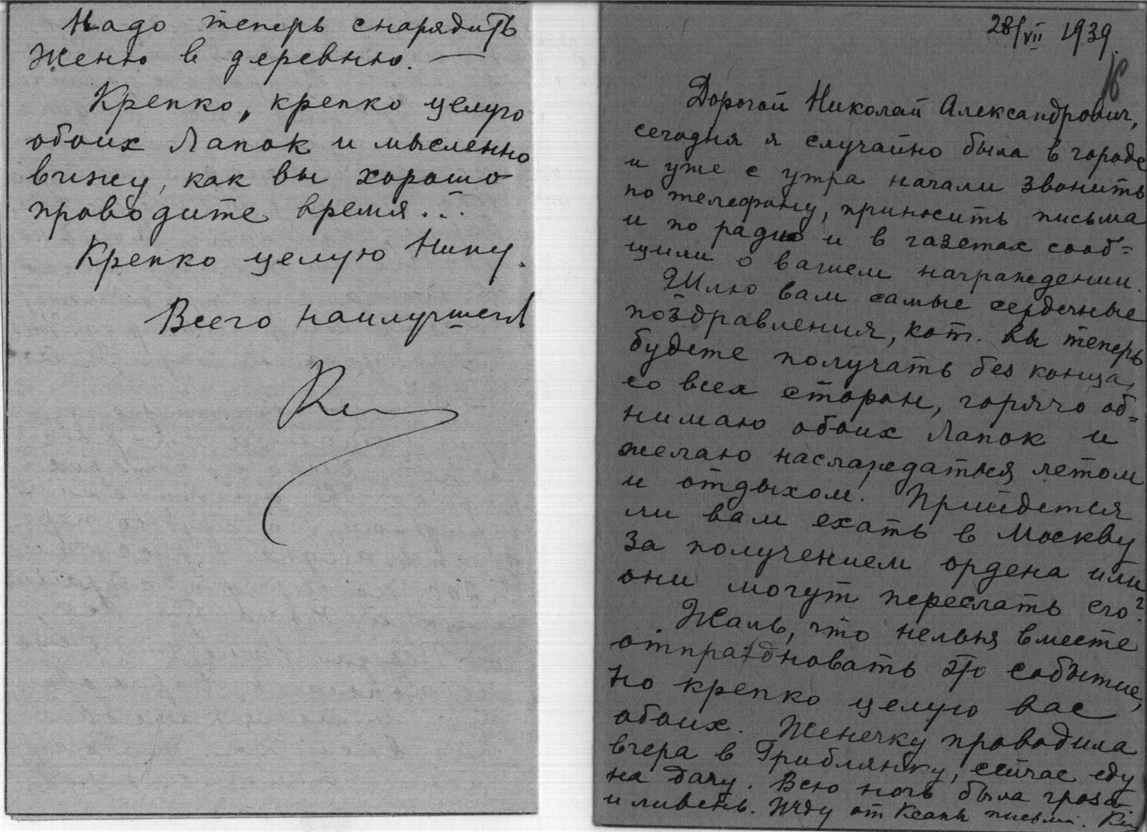 Надо теперь снарядить
Женю в деревню. —
Крепко, крепко целую
обоих Лапок и мысленно
вижу, как вы хорошо
проводите время...
Крепко целую Нину.
Всего наилучшего
28/VII 1939
16
Дорогой Николай Александрович,
сегодня я случайно была в городе
и уже с утра начали звонить
по телефону, приносить письма
и по радио и в газетах сооб=
щили о вашем награждении.
Шлю вам самые сердечные
поздравления, кот. вы теперь
будете получать без конца,
со всех сторон, горячо об=
нимаю обоих Лапок и
желаю наслаждаться летом
и отдыхом. Прийдется
ли вам ехать в Москву
за получением ордена или
они могут переслать его?
Жаль, что нельзя вместе
отпраздновать это событие,
но крепко целую вас
обоих. Женечку проводила
вчера в Гриблянку, сейчас еду
на дачу. Всю ночь была гроза
и ливень. Жду от Ксаны письма.